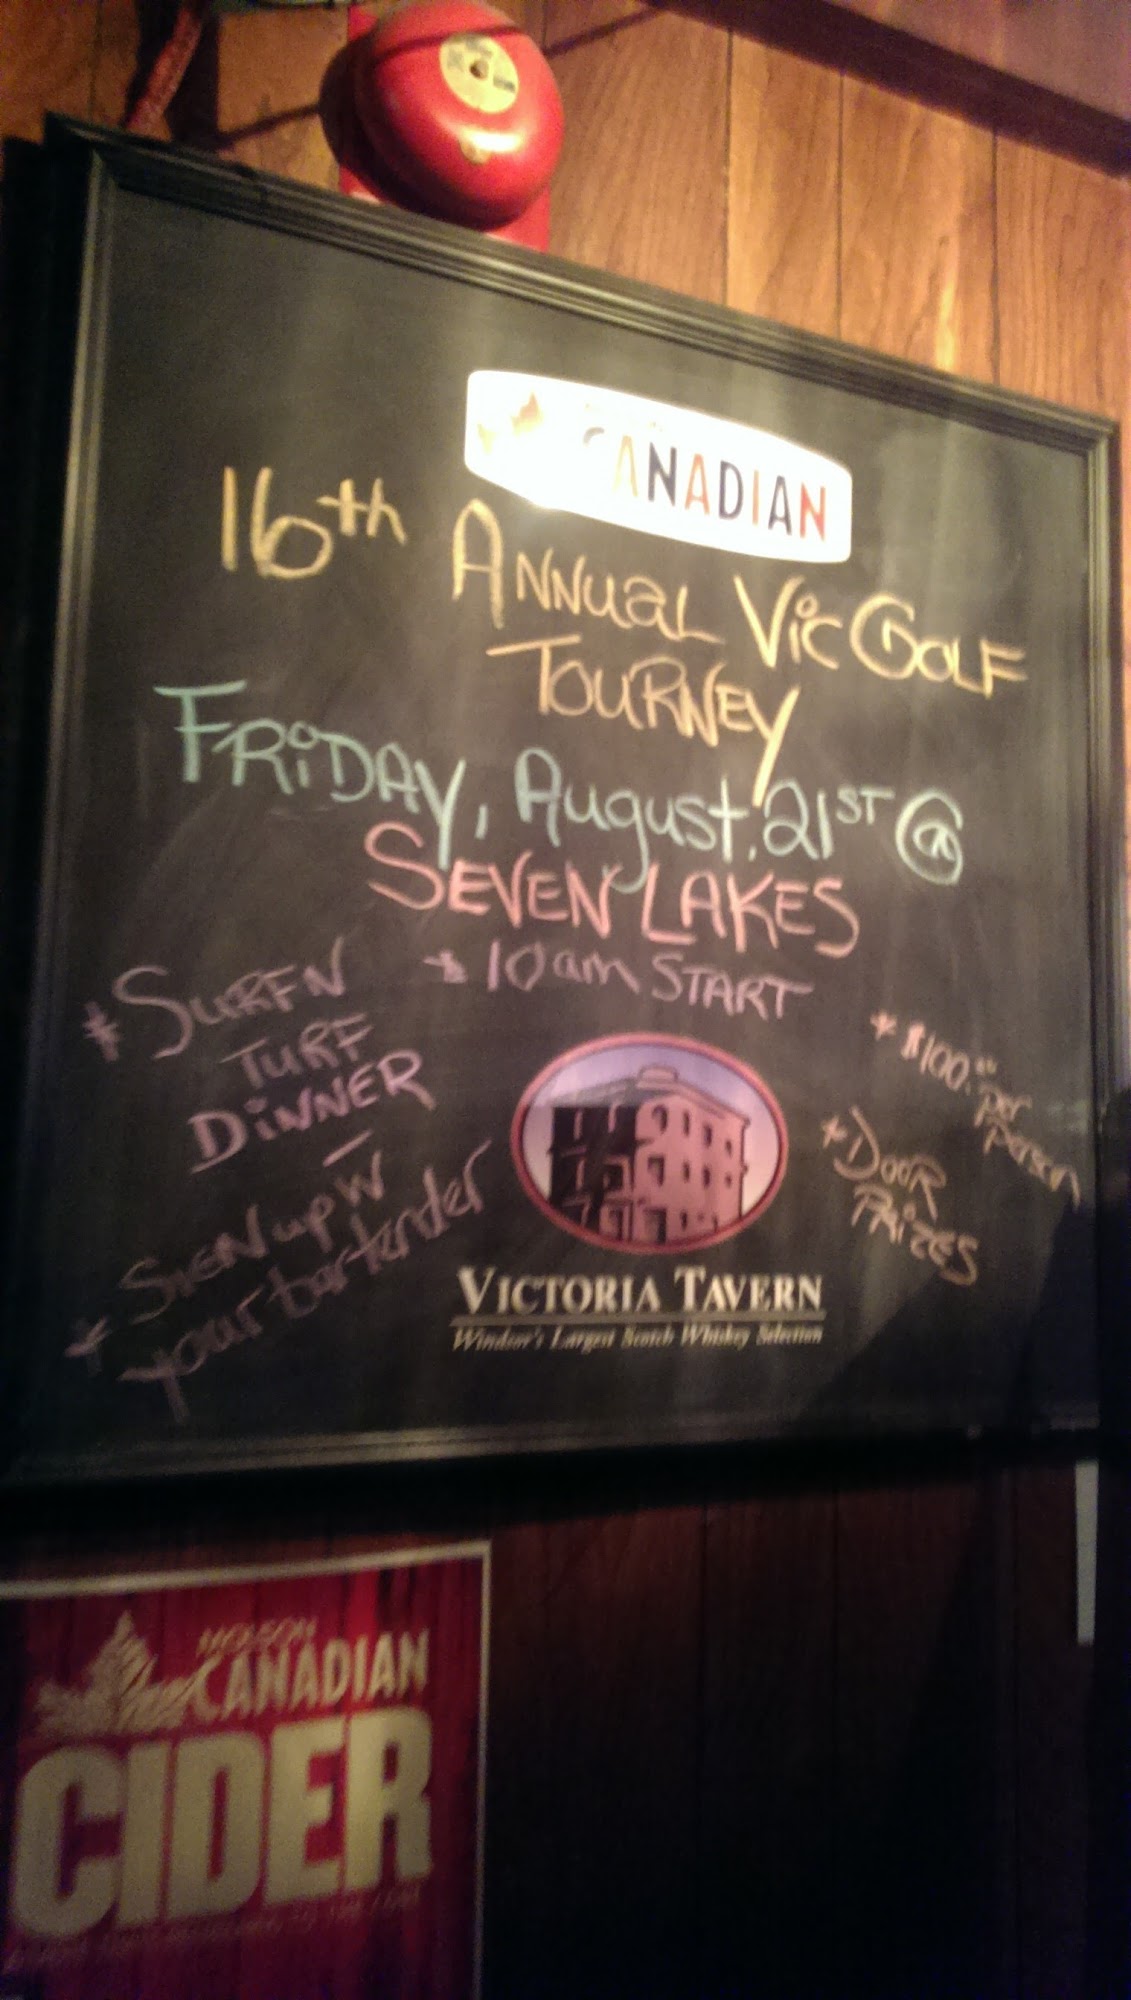 CANADIAN
16th ANNUAL VIC GOLF
TOURNEY
FRIDAY, AUGUST. 21ST @
SEVEN LAKES
* 10am START
* SURF N
TURF
DINNER
* SIGN up w
your bartender
* $100.00 per
person
* DOOR
PRIZES
VICTORIA TAVERN
Windsor's Largest Scotch Whiskey Selection
MOLSON
CANADIAN
CIDER